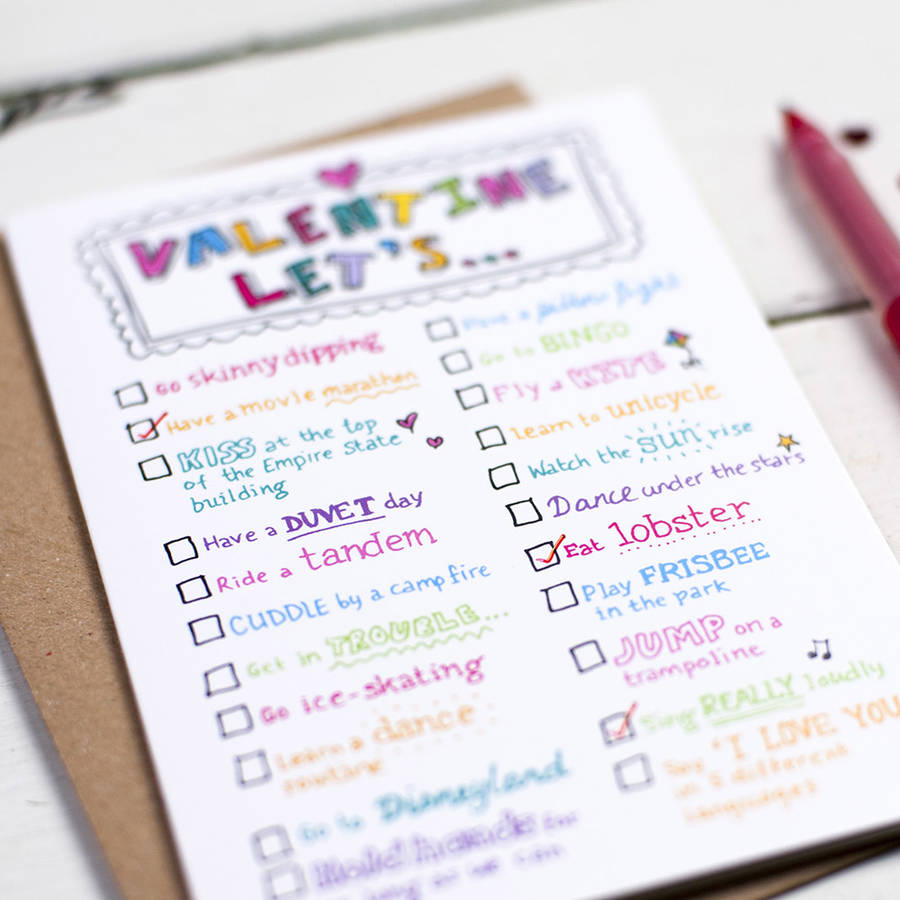 VALENTINE
LET'S...
Go skinny dipping
Have a movie marathon
KISS at the top
of the Empire State
building
Have a DUVET day
Ride a tandem
CUDDLE by a campfire
Get in TROUBLE...
Go ice-skating
Learn a dance
routine
Go to Disneyland
Hold hands for
as long as we can
Have a pillow fight
Go to BINGO
Fly a KITE
Learn to unicycle
Watch the sun rise
Dance under the stars
Eat lobster
Play FRISBEE
in the park
JUMP on a
trampoline
Sing REALLY loudly
Say 'I LOVE YOU
in 5 different
languages